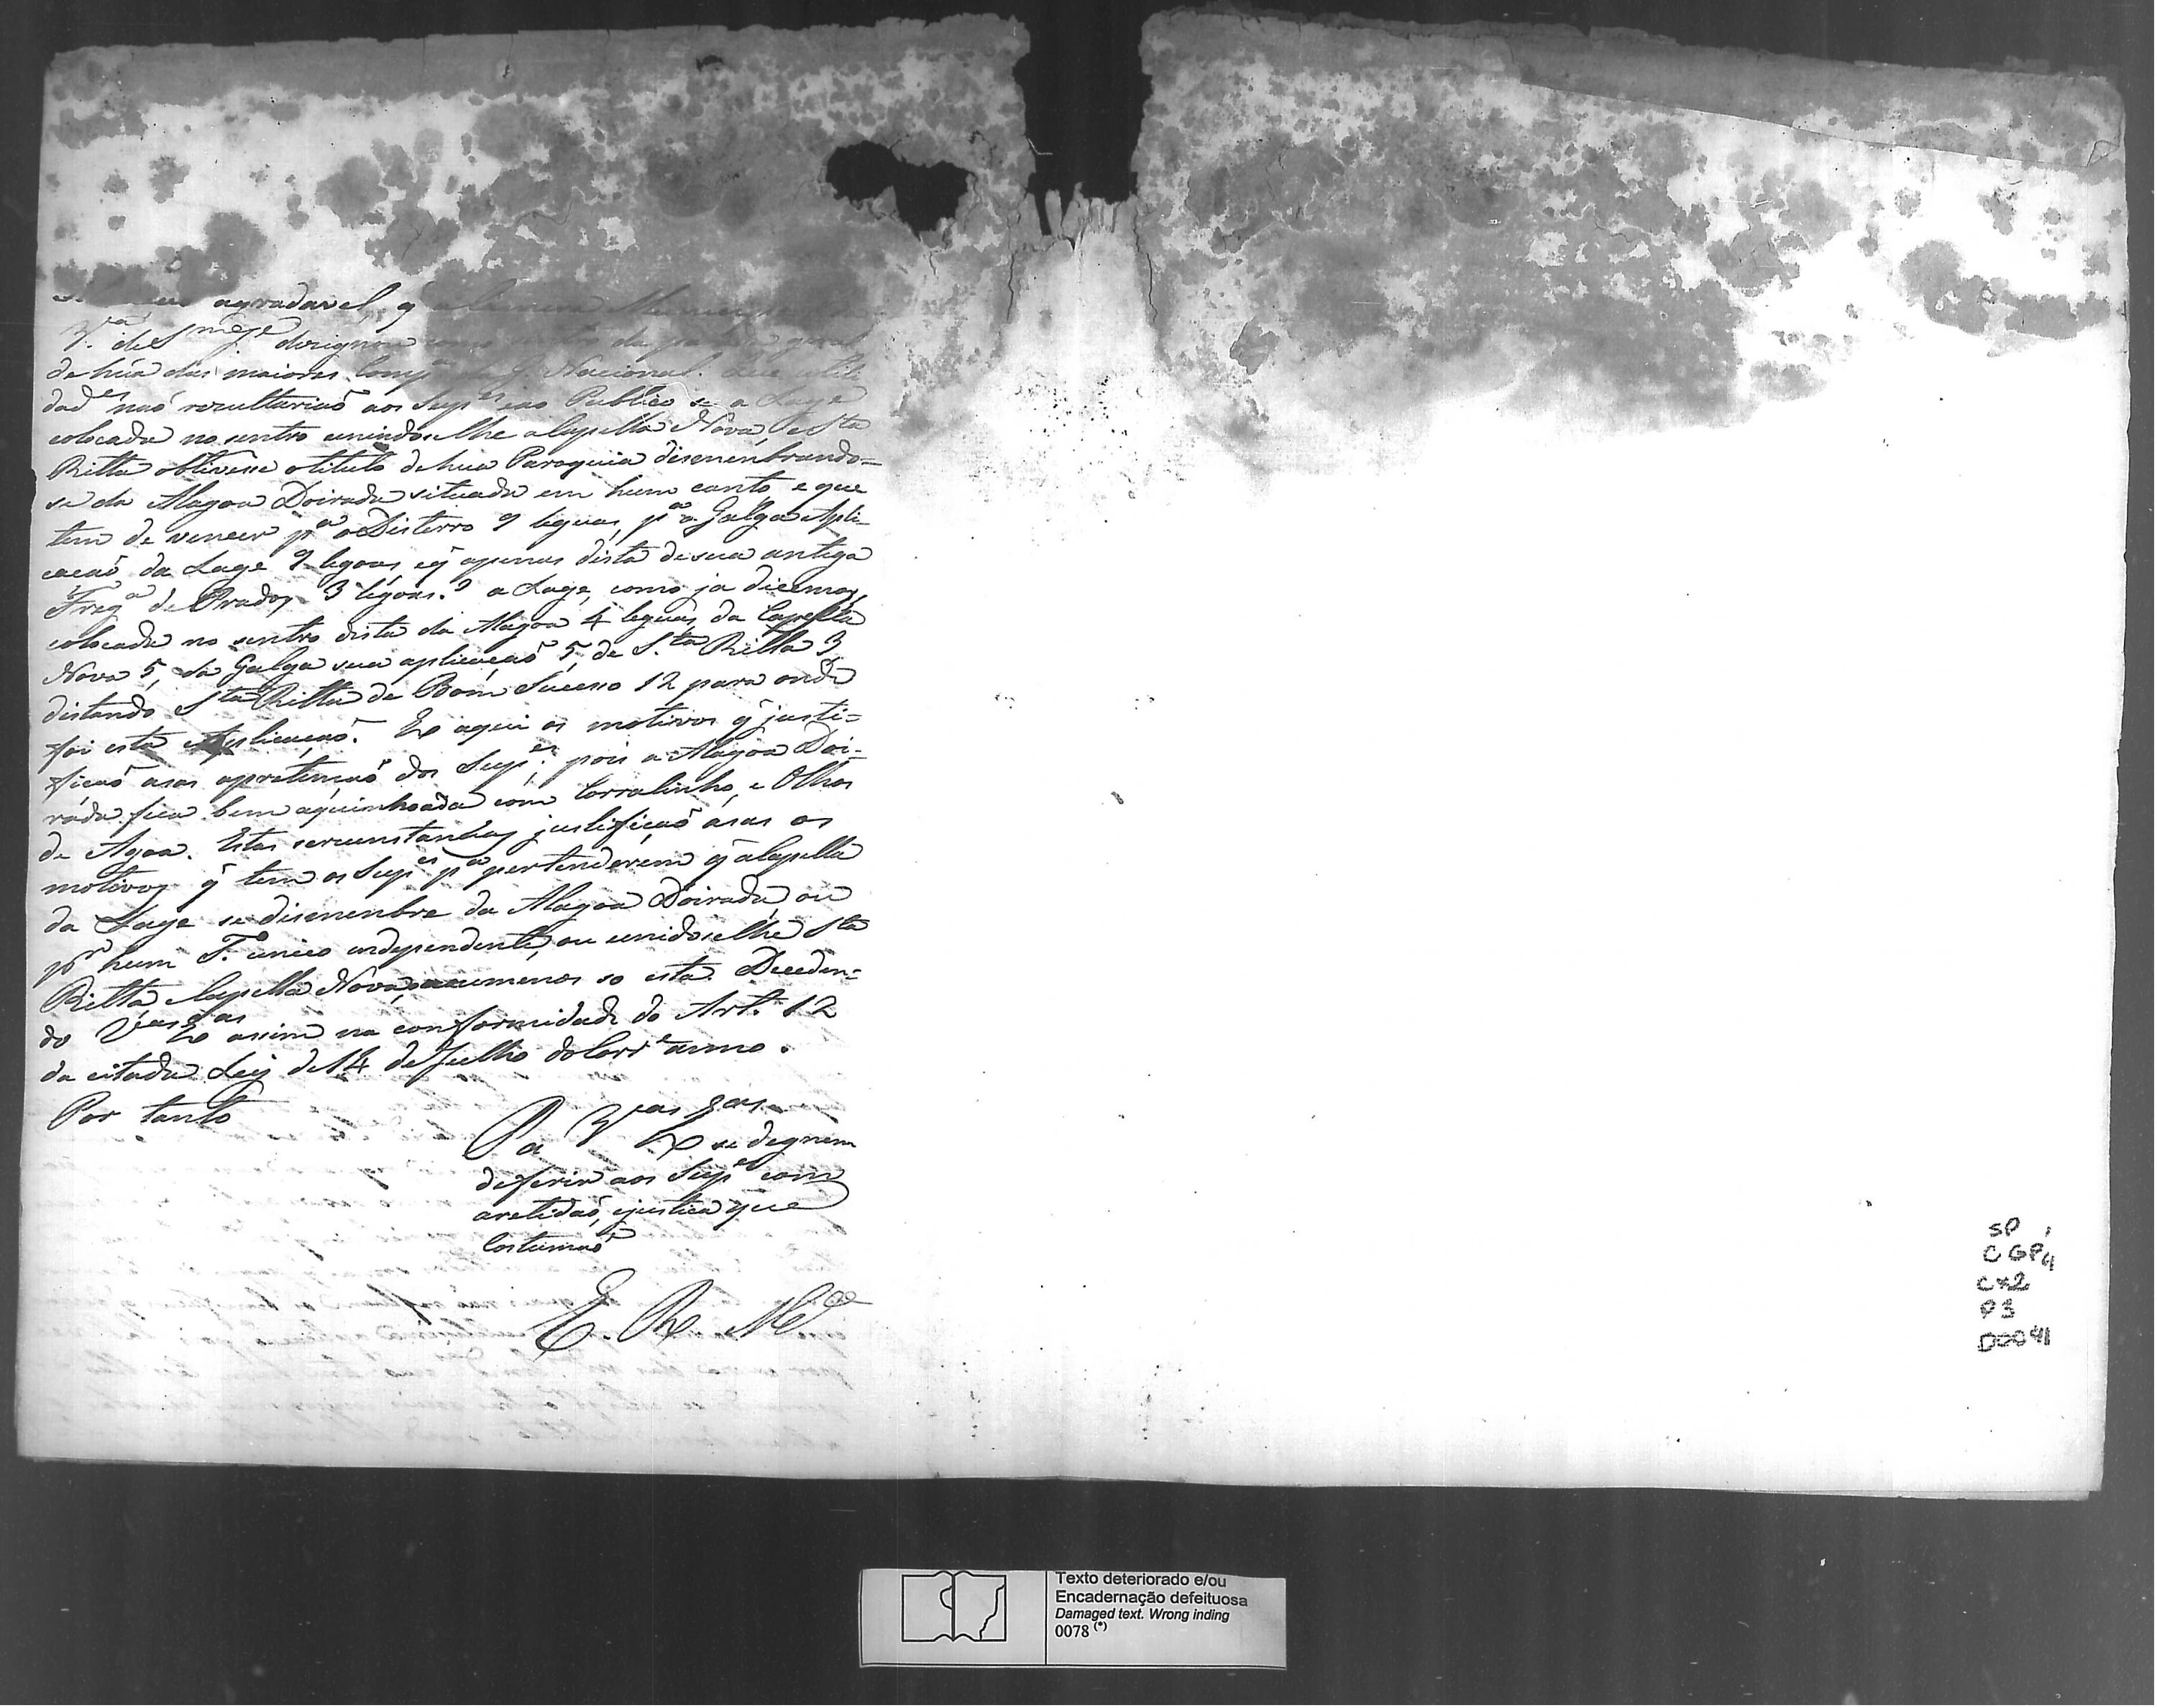 agradavel, q̃ a
Vª. de S mge dirigno
de húa das maiores Nacional.
dades naõ rezultariaõ aos Supes e ao Publico se a Lage
colocada no sentro unindose lhe a Capella Nova, e Sta
Ritta obtivesse o titulo de hua Paroquia disenenbrando=
se da Alagoa Doirada situada em hum canto, e que
tem de vencer pª o Disterro 9 legoas, pª a Galga Apli-
cacaõ da Lage 9 legoas e q̃ apenas dista de sua antiga
Fregª de Prados 3 legoas.? a Lage, como ja dicemos,
colocada no sentro dista da Alagoa 4 legoas, da Capella
Nova 5, da Galga sua aplicaçaõ 5, de S.ta Ritta 3,
distando Sta Ritta de Bom Sucesso 12 para onde
foi esta Aplicacaõ. Ex aqui os motivos q̃ justi=
ficaõ asas apretençaõ dos Supes; pois a Alagoa Doi-
rada fica bem aquinhoada com Corralinho, e Olhos
de Agoa. Estas sercunstancias justificaõ asas os
motivos q̃ tem os Supes pª pertenderem q̃ a Capella
da Lage se disenenbre da Alagoa Doirada, ou
pr hum T.º unico independente, ou unidoselhe Sta
Ritta, e Capella Nova, ao menos so esta. Deceden=
do Vas Exas assim na conformidade do Art.º 12
da citada Ley de 14 de Julho do Corre anno.
Por tanto
Pa Vas Exas se dignem
deferir aos Supes com
aretidaõ, ejustica que
Costumaõ
E. R. Mce
SP
CGP4
Cx2
P3
D0041
Texto deteriorado e/ou
Encadernação defeituosa
Damaged text. Wrong inding
0078 (*)